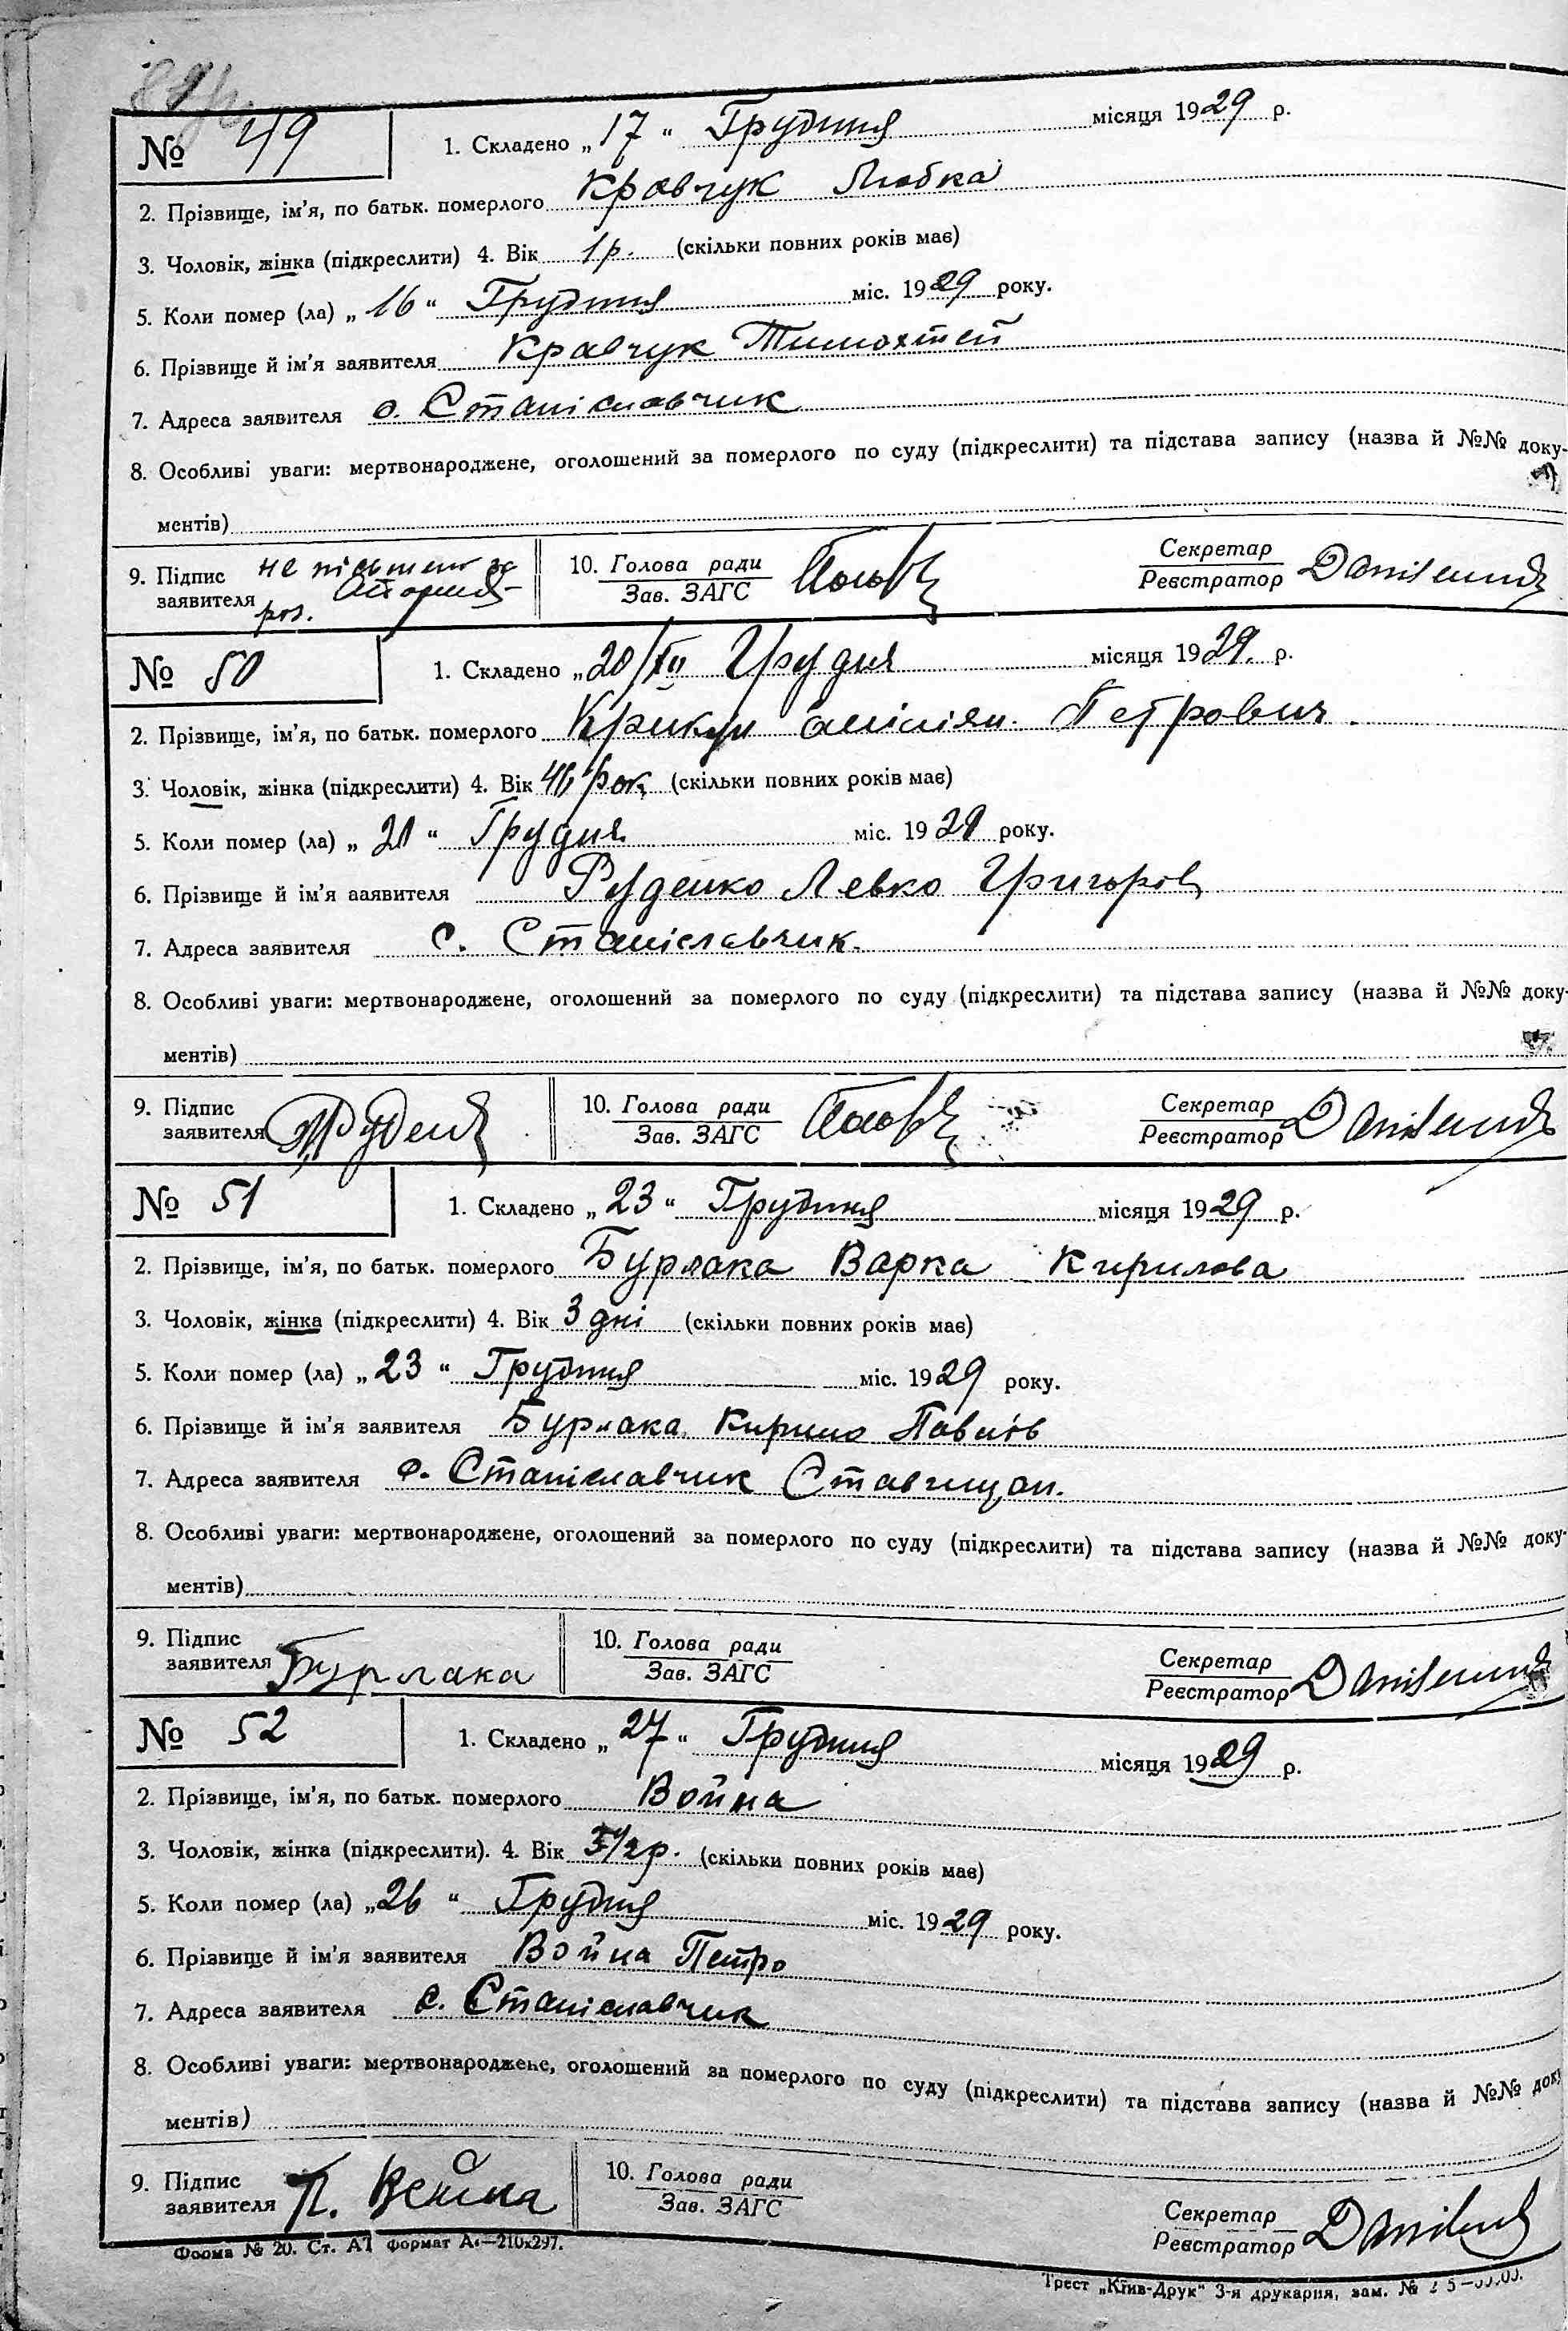 № 49 1. Складено „17“ Грудння місяця 1929 р.
2. Прізвище, ім'я, по батьк. померлого Кравчук Любка
3. Чоловік, жінка (підкреслити) 4. Вік 1 р. (скільки повних років має)
5. Коли помер (ла) „16“ Грудння міс. 1929 року.
6. Прізвище й ім'я заявителя Кравчук Тимохтей
7. Адреса заявителя с. Станіславчик
8. Особливі уваги: мертвонароджене, оголошений за померлого по суду (підкреслити) та підстава запису (назва й №№ доку-
ментів)
9. Підпис заявителя не письмен за роз. 10. Голова ради Зав. ЗАГС Секретар Реєстратор
№ 50 1. Складено „20/XII Грудня місяця 1929. р.
2. Прізвище, ім'я, по батьк. померлого Петрович.
3. Чоловік, жінка (підкреслити) 4. Вік 46 рок. (скільки повних років має)
5. Коли помер (ла) „ “ Грудня міс. 1929 року.
6. Прізвище й ім'я ааявителя Руденко Левко Григоров
7. Адреса заявителя с. Станіславчик.
8. Особливі уваги: мертвонароджене, оголошений за померлого по суду (підкреслити) та підстава запису (назва й №№ доку-
ментів)
9. Підпис заявителя 10. Голова ради Зав. ЗАГС Секретар Реєстратор
№ 51 1. Складено „23“ Грудння місяця 1929 р.
2. Прізвище, ім'я, по батьк. померлого Бурлака Варка Кирилова
3. Чоловік, жінка (підкреслити) 4. Вік 3 дні (скільки повних років має)
5. Коли помер (ла) „23“ Грудння міс. 1929 року.
6. Прізвище й ім'я заявителя Бурлака Кирило Павлів
7. Адреса заявителя с. Станіславчик Ставищан.
8. Особливі уваги: мертвонароджене, оголошений за померлого по суду (підкреслити) та підстава запису (назва й №№ доку-
ментів)
9. Підпис заявителя Бурлака 10. Голова ради Зав. ЗАГС Секретар Реєстратор
№ 52 1. Складено „27“ Грудння місяця 1929 р.
2. Прізвище, ім'я, по батьк. померлого Война
3. Чоловік, жінка (підкреслити). 4. Вік (скільки повних років має)
5. Коли помер (ла) „26“ Грудня міс. 1929 року.
6. Прізвище й ім'я заявителя Война Петро
7. Адреса заявителя с. Станіславчик
8. Особливі уваги: мертвонароджене, оголошений за померлого по суду (підкреслити) та підстава запису (назва й №№ доку
ментів)
9. Підпис заявителя П. Война 10. Голова ради Зав. ЗАГС Секретар Реєстратор
Форма № 20. Ст. А7 формат А4—210x297.
Трест „Київ-Друк“ 3-я друкарня, зам. №